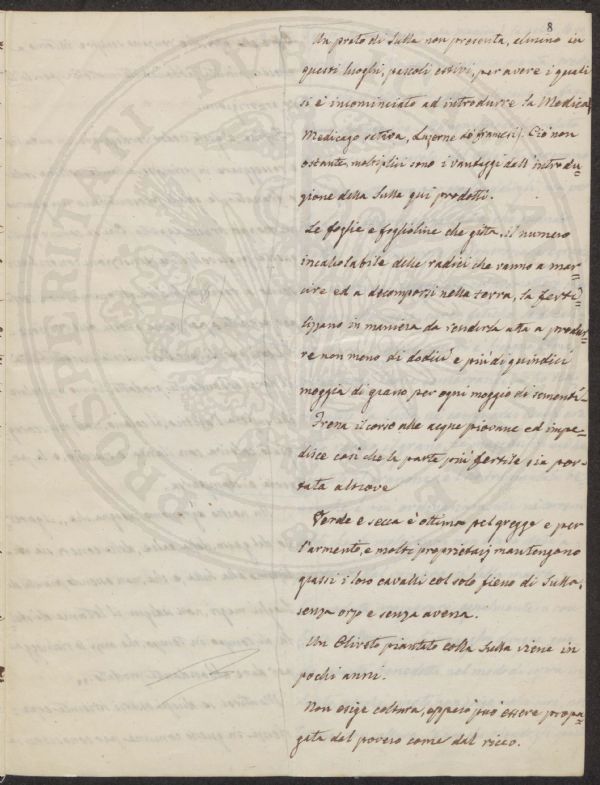 8
Un prato di Sulla non presenta, almeno in
questi luoghi, pascoli estivi, per avere i quali
si è incominciato ad introdurre la Medica
Medicago sativa, Luzerne de' francesi). Ciò non
ostante moltiplici sono i vantaggi dall'introdu=
zione della Sulla qui prodotti.
Le foglie e foglioline che gitta, il numero
incalcolabile delle radici che vanno a mar=
cire ed a decomporsi nella terra, la ferti=
lizzano in maniera da renderla atta a produr=
re non meno di dodici e più di quindici
moggia di grano per ogni moggio di sementi.
Frena il corso alle acque piovane ed impe=
disce così che la parte più fertile sia por=
tata altrove
Verde e secca è ottima pel gregge e per
l'armento, e molti proprietarj mantengono
grassi i loro cavalli col solo fieno di Sulla,
senza orzo e senza avena.
Un Oliveto piantato colla Sulla viene in
pochi anni.
Non esige coltura, eppero può essere propa=
gata dal povero come dal ricco.
PROSPERITATI PUBLICAE